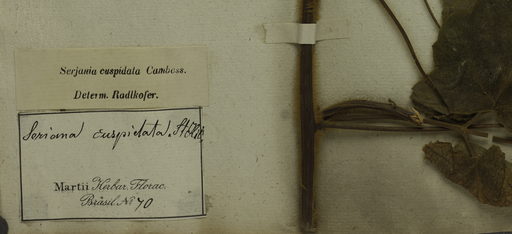 Serjania cuspidata Cambess.
Determ. Radlkofer.
Seriana cuspidata. St Hil.
Martii Herbar. Florae
Brasil. No 70